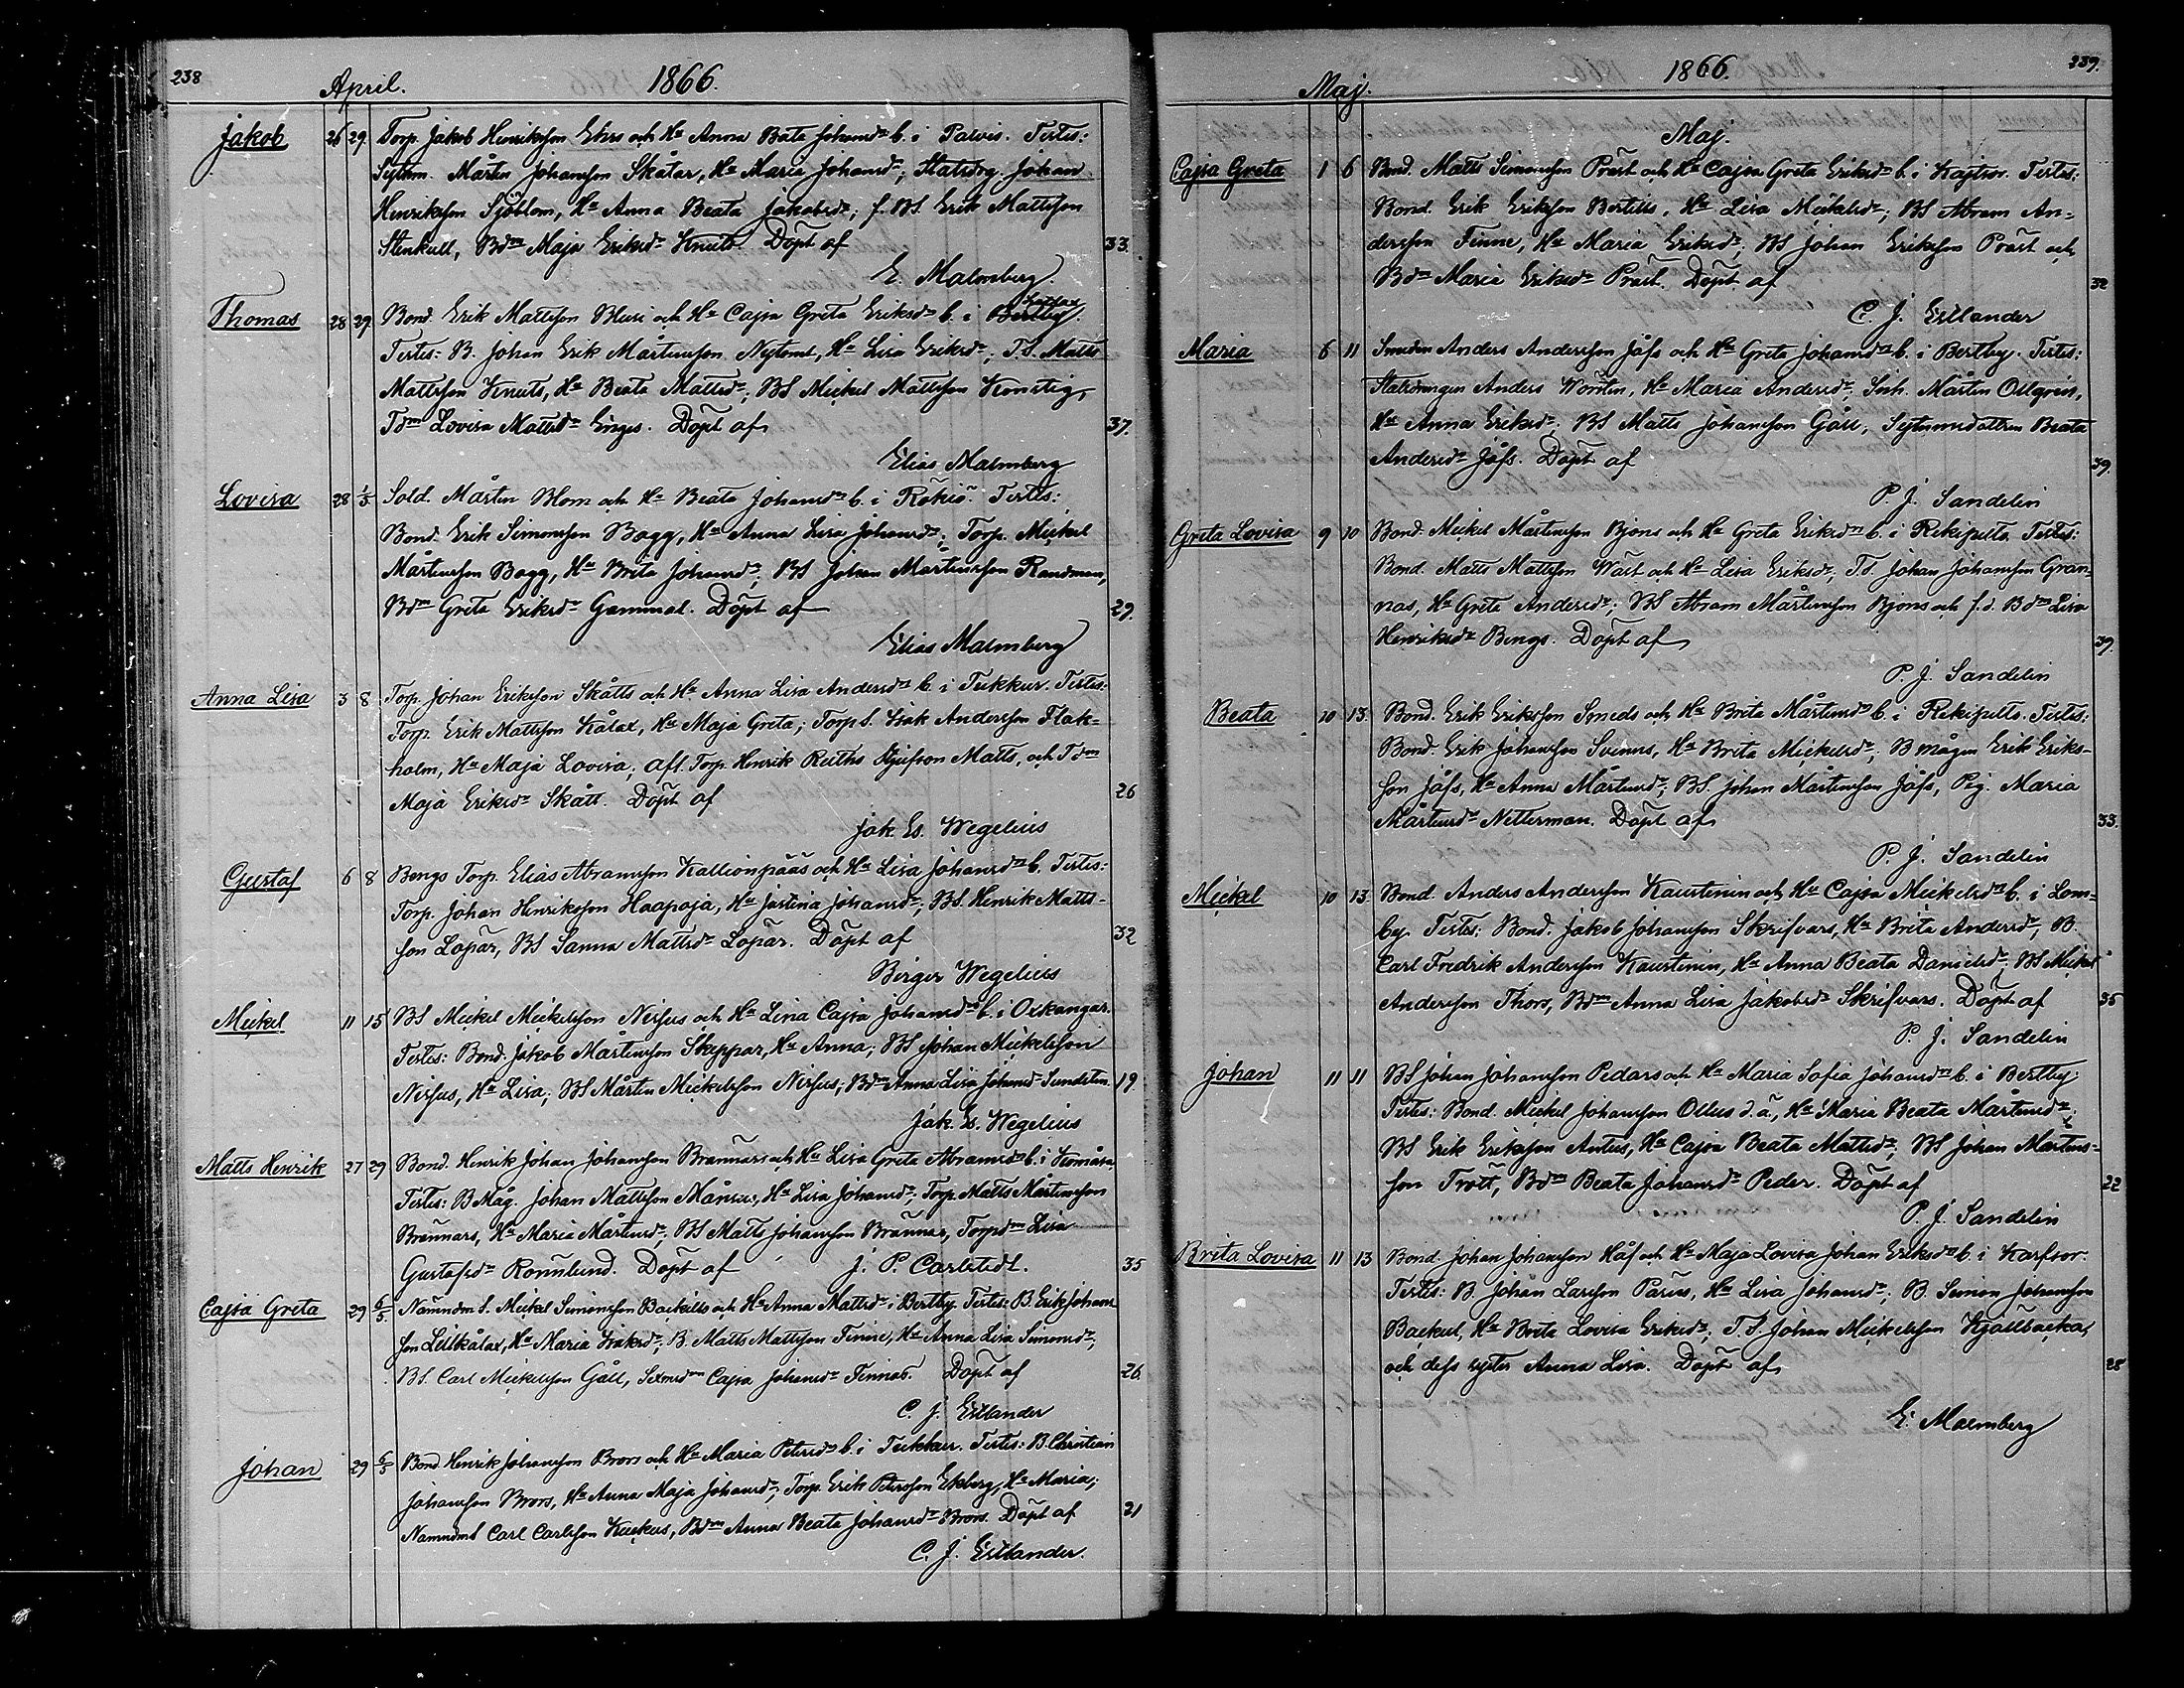 238
April. 1866.
Jakob 26 29. Torp. Jakob Henriksson Ehrs och Hu Anna Bata Johansdr b. i Palvis. Testes:
Sytnm. Mårten Johansson Skåtar, Hu Maria Johansdr; Statsdrg. Johan
Henriksson Sjöblom, Hu Anna Beata Jakobsdr; f. BS. Erik Mattsson
Stenkull, Bdm Maja Eriksdr Knuts. Döpt af 33.
E. Malmberg.
Thomas 28 29. Bond. Erik Mattsson Blusi och Hu Cajsa Greta Eriksdr b. i Bertby.
Testes: B. Johan Erik Mårtensson Nytomt, Hu Lisa Eriksdr; T.S. Matts
Mattsson Knuts, Hu Beata Mattsdr; BS Mickel Mattsson Konstig,
Tdm Lovisa Mattsdr Enges. Döpt af 37.
Elias Malmberg
Lovisa 28 1/5 Sold. Mårten Blom och Hu Beata Johansdr b. i Rökiö. Testes:
Bond. Erik Simonsson Bagg, Hu Anna Lisa Johansdr; Torp. Mickel
Mårtensson Bagg, Hu Brita Johansdr; BS Johan Mårtensson Randman,
Bdm Greta Eriksdr Gammal. Döpt af 29.
Elias Malmberg
Anna Lisa 3 8 Torp. Johan Eriksson Skåtts och Hu Anna Lisa Andersdr b. i Tuckur. Testes:
Torp. Erik Mattsson Kålax, Hu Maja Greta; Torp S. Isak Andersson Flak-
holm, Hu Maja Lovisa; afl. Torp. Henrik Ruths Styfson Matts, och Tdm
Maja Eriksdr Skått. Döpt af 26
Jak. Es. Wegelius
Gustaf 6 8 Bengs Torp. Elias Abramsson Kallionpääs och Hu Lisa Johansdr b. Testes:
Torp. Johan Henriksson Haapoja, Hu Justina Johansdr; BS. Henrik Matts-
son Lopar, BS Sanna Mattsdr Lopar. Döpt af 32
Birger Wegelius
Mickel 11 15 BS Mickel Mickelsson Nissus och Hu Lena Cajsa Johansdr b. i Oxkangar.
Testes: Bond. Jakob Mårtensson Skeppar, Hu Anna; BS Johan Mickelsson
Nissus, Hu Lisa; BS Mårten Mickelsson Nissus; Bdm Anna Lisa Johansdr Sundsten. 19
Jak. Es. Wegelius
Matts Henrik 27 29 Bond. Henrik Johan Johansson Brännars och Hu Lisa Greta Abramsdr b. i Komåsa,
Testes: B Måg. Johan Mattsson Månsus, Hu Lisa Johansdr; Torp. Matts Mårtensson
Brännars, Hu Maria Mårtensdr; BS Matts Johansson Brännar, Torpdm Lisa
Gustafsdr Rönnlund. Döpt af J. P. Carlstedt. 35
Cajsa Greta 29 6/5 Nämndm S. Mickel Simonsson Backills och Hu Anna Mattsdr i Bertby. Testes: B. Erik Johans-
son Lillkålax, Hu Maria Isaksdr; B. Matts Mattsson Finne, Hu Anna Lisa Simonsdr;
BS. Carl Mickelsson Gåll, Sexmdm Cajsa Johansdr Finnas. Döpt af 26
C. J. Estlander
Johan 29 6/5 Bond. Henrik Johansson Brors och Hu Maria Petersdr b. i Tuckur. Testes: B. Christian
Johansson Brors, Hu Anna Maja Johansdr; Torp. Erik Petersson Ekberg, Hu Maria;
NämndmS Carl Carlsson Kuckus, Bdm Anna Beata Johansdr Brors. Döpt af 21
C. J. Estlander.
1866. 239.
Maj.
Maj.
Cajsa Greta 1 6 Bond. Matts Simonsson Präst och Hu Cajsa Greta Eriksdr b. i Kajtsor. Testes:
Bond. Erik Eriksson Bertills, Hu Lisa Mickelsdr; BS Abram An-
dersson Finne, Hu Maria Eriksdr; BS Johan Eriksson Präst och
Bdm Maria Eriksdr Präst. Döpt af 32
C. J. Estlander
Maria 6 11 Smeden Anders Andersson Jåfs och Hu Greta Johansdr b. i Bertby. Testes:
Statsdrengen Anders Wörlin, Hu Maria Andersdr; Inh. Mårten Ollqvist,
Hu Anna Eriksdr; BS Matts Johansson Gåll, Sytnmsdottren Beata
Andersdr Jåfs. Döpt af 39.
P. J. Sandelin
Greta Lovisa 9 10 Bond. Mickel Mårtensson Bjons och Hu Greta Eriksdr b. i Rekipelto. Testes:
Bond. Matts Mattsson Wäst och Hu Lisa Eriksdr; T.S. Johan Johansson Gran-
nas, Hu Greta Andersdr; BS Abram Mårtensson Bjons och f.d. Bdm Lisa
Henriksdr Bengs. Döpt af 39.
P. J. Sandelin
Beata 10 13. Bond. Erik Eriksson Smeds och Hu Brita Mårtensdr b. i Rekipelto. Testes:
Bond. Erik Johansson Svenns, Hu Brita Mickelsdr; B mågen Erik Eriks-
son Jåfs, Hu Anna Mårtensdr; BS. Johan Mårtensson Jåfs, Pig. Maria
Mårtensdr Netterman. Döpt af 33.
P. J. Sandelin
Mickel 10 13 Bond. Anders Andersson Kaustinin och Hu Cajsa Mickelsdr b. i Lom-
by. Testes: Bond. Jakob Johansson Skrifvars, Hu Brita Andersdr; B.
Carl Fredrik Andersson Kaustinin, Hu Anna Beata Danielsdr; BS Mickel
Andersson Thors, Bdm Anna Lisa Jakobsdr Skrifvars. Döpt af 35
P. J. Sandelin
Johan 11 11 BS Johan Johansson Pedars och Hu Maria Sofia Johansdr b. i Bertby.
Testes: Bond. Mickel Johansson Ollus d.ä., Hu Maria Beata Mårtensdr;
BS Erik Eriksson Antus, Hu Cajsa Beata Mattsdr; BS Johan Mårtens-
son Trött, Bdm Beata Johansdr Peder. Döpt af 22
P. J. Sandelin
Brita Lovisa 11 13 Bond. Johan Johansson Håf och Hu Maja Lovisa Johan Eriksdr b. i Karfsor.
Testes: B. Johan Larsson Parus, Hu Lisa Johansdr; B. Simon Johansson
Backul, Hu Brita Lovisa Eriksdr; T.S. Johan Mickelsson Kjällbacka,
och dess syster Anna Lisa. Döpt af 28
E. Malmberg